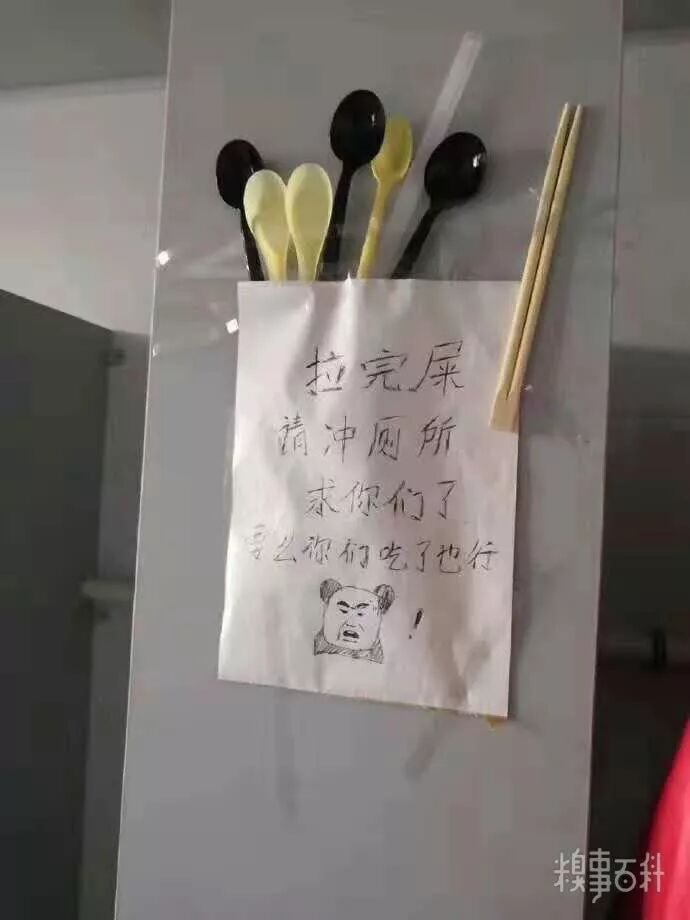 拉完屎
请冲厕所
求你们了
要么你们吃了也行
!
糗事百科